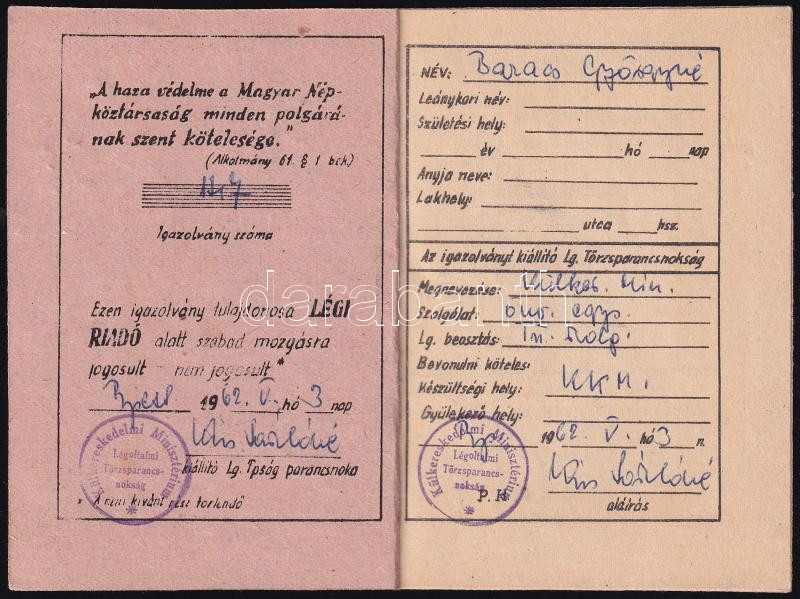 „A haza védelme a Magyar Nép-
köztársaság minden polgárá-
nak szent kötelesége."
(Alkotmány 61. § 1 bek.)
Igazolvány száma
Ezen igazolvány tulajdonosa LÉGI
RIADÓ alatt szabad mozgásra
jogosult – nem jogosult*
Bpest 1962. V. hó 3 nap
kiállitó Lg. Tpság parancsnoka
* A nem kivánt rész törlendő
Külkereskedelmi Minisztérium
Légoltalmi
Törzsparancs-
nokság
NÉV: Baracs Györgyné
Leánykori név:
Születési hely:
év hó nap
Anyja neve:
Lakhely:
utca hsz.
Az igazolványt kiállító Lg. Törzsparancsnokság
Megnevezése: Külker. Min.
Szolgálat: önv. egys.
Lg. beosztás:
Bevonulni köteles:
Készültségi hely: KKM.
Gyülekező hely:
Bp 1962. V. hó 3 n.
P.H
aláirás
Külkereskedelmi Minisztérium
Légoltalmi
Törzsparancs-
nokság
darabanth